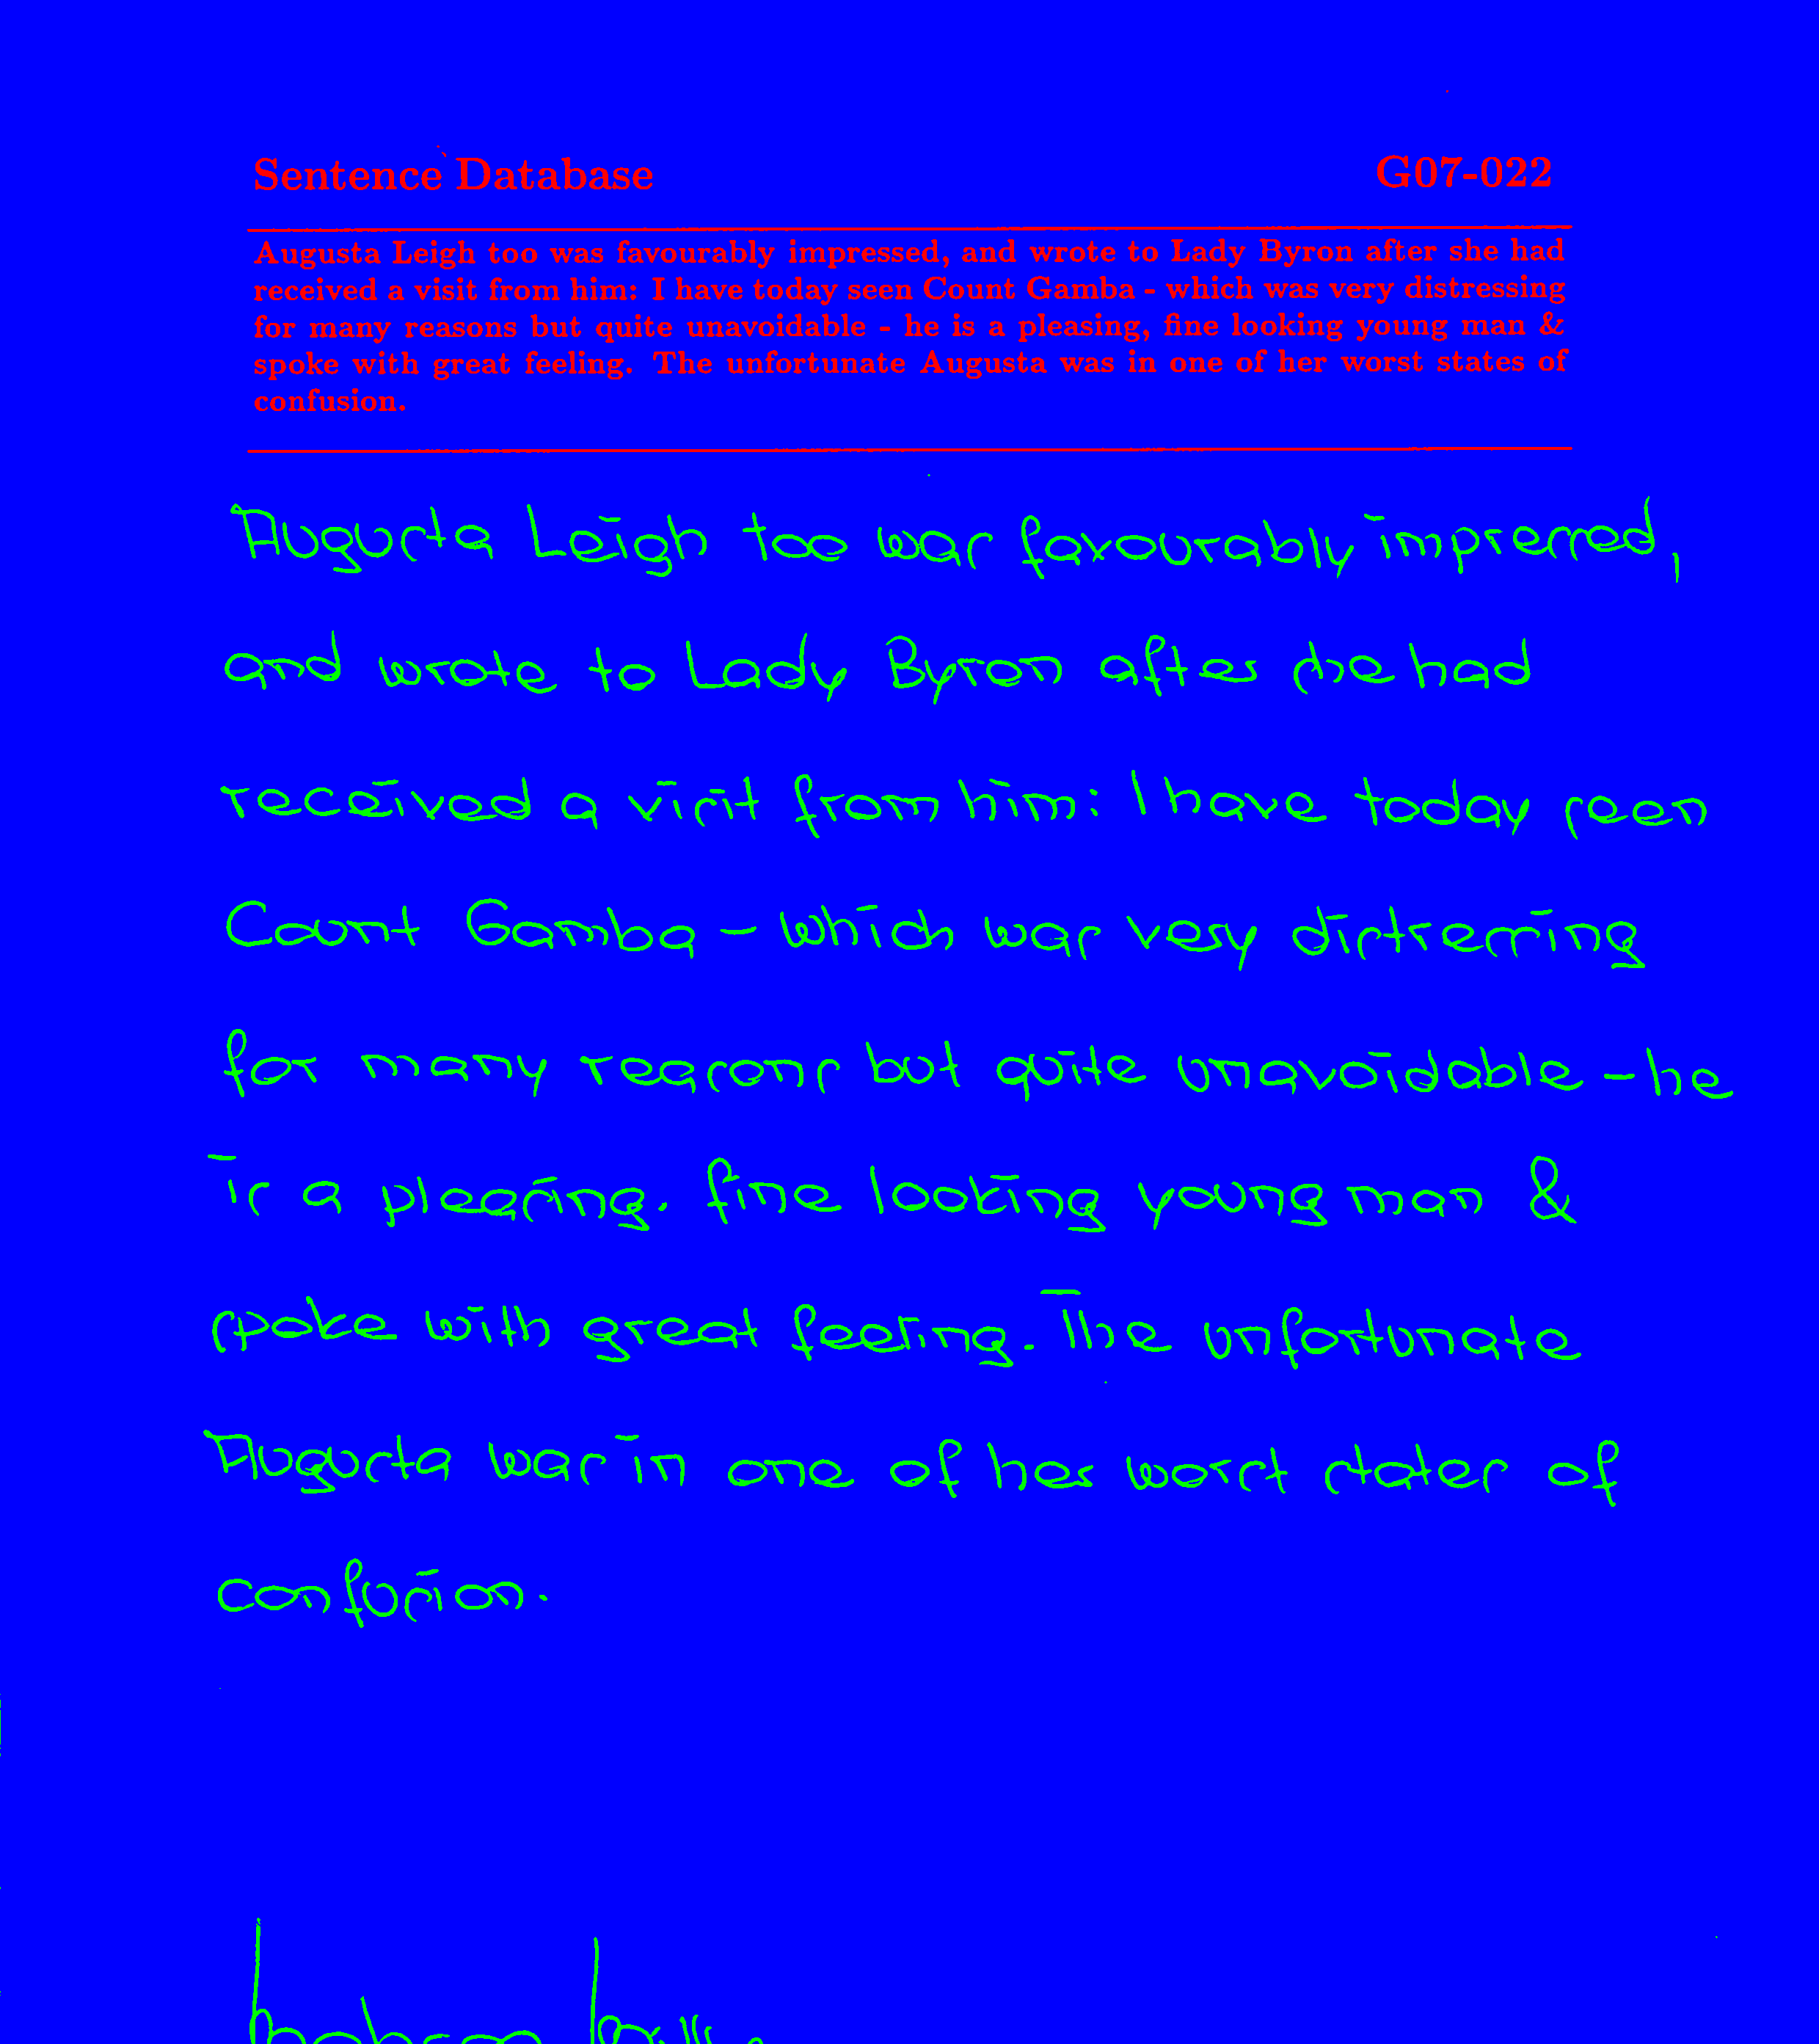 Sentence Database G07-022
Augusta Leigh too was favourably impressed, and wrote to Lady Byron after she had
received a visit from him: I have today seen Count Gamba - which was very distressing
for many reasons but quite unavoidable - he is a pleasing, fine looking young man &
spoke with great feeling. The unfortunate Augusta was in one of her worst states of
confusion.
Augusta Leigh too was favourably impressed,
and wrote to Lady Byron after she had
received a visit from him: I have today seen
Count Gamba - which was very distressing
for many reasons but quite unavoidable - he
is a pleasing. fine looking young man &
spoke with great feeling. The unfortunate
Augusta was in one of her worst states of
confusion.